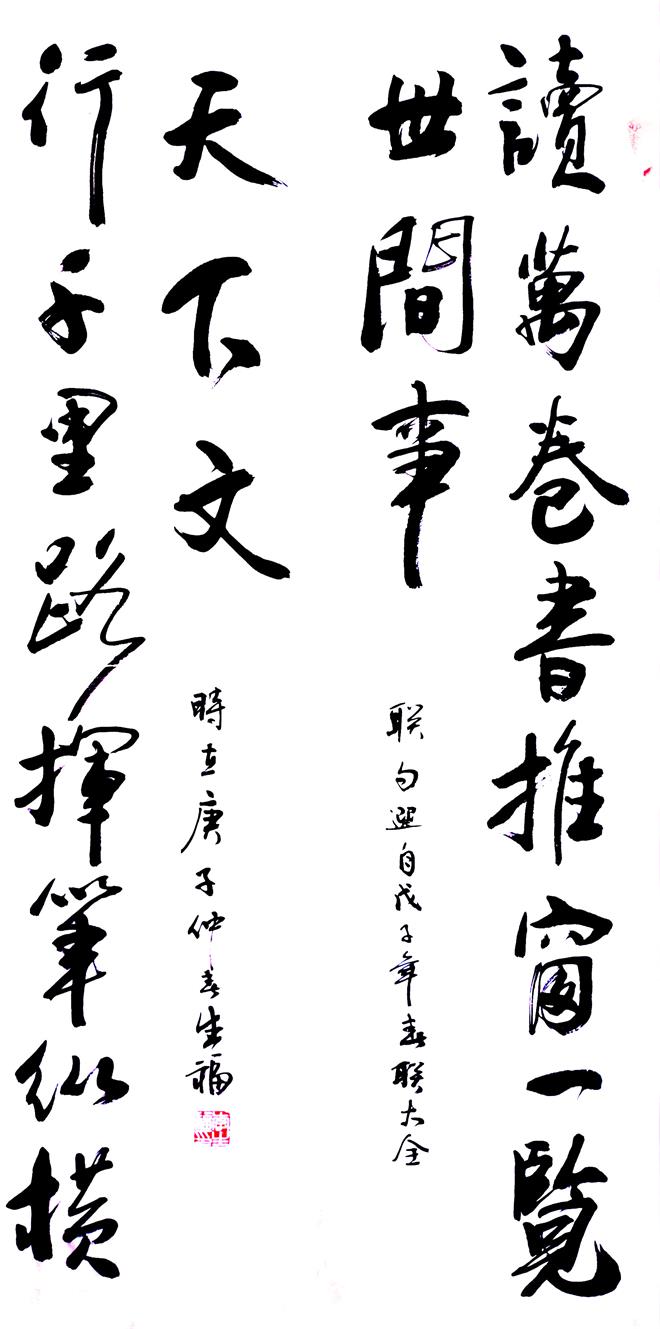 讀萬卷書推窗一覽
世間事
联句選自戊子年春联大全
行千里路揮筆纵横
天下文
時在庚子仲春生福